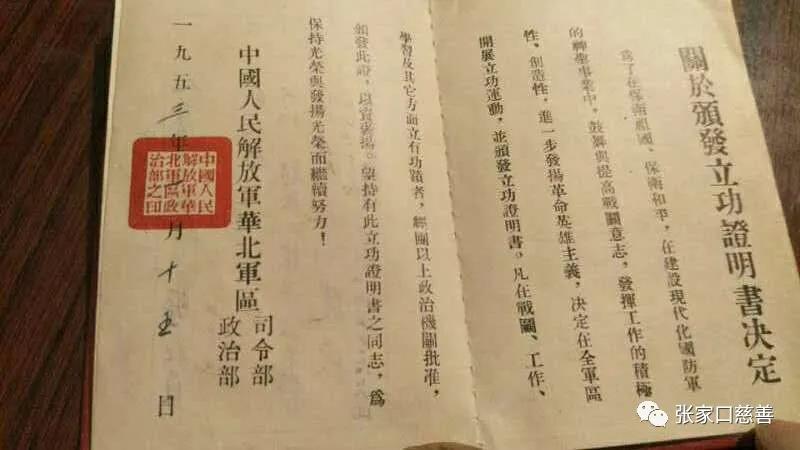 關於頒發立功證明書决定
為了在保衛祖國、保衛和平，在建設現代化國防軍
的神聖事業中，鼓舞與提高戰鬭意志，發揮工作的積極
性、創造性，進一步發揚革命英雄主義，决定在全軍區
開展立功運動，並頒發立功證明書。凡在戰鬭、工作、
學習及其它方面立有功績者，經團以上政治機關批准，
頒發此證，以資表揚。望持有此立功證明書之同志，為
保持光榮與發揚光榮而繼續努力！
中國人民解放軍華北軍區
司令部
政治部
一九五三年 月十五日
中國人民
解放軍華
北軍區政
治部之印
张家口慈善